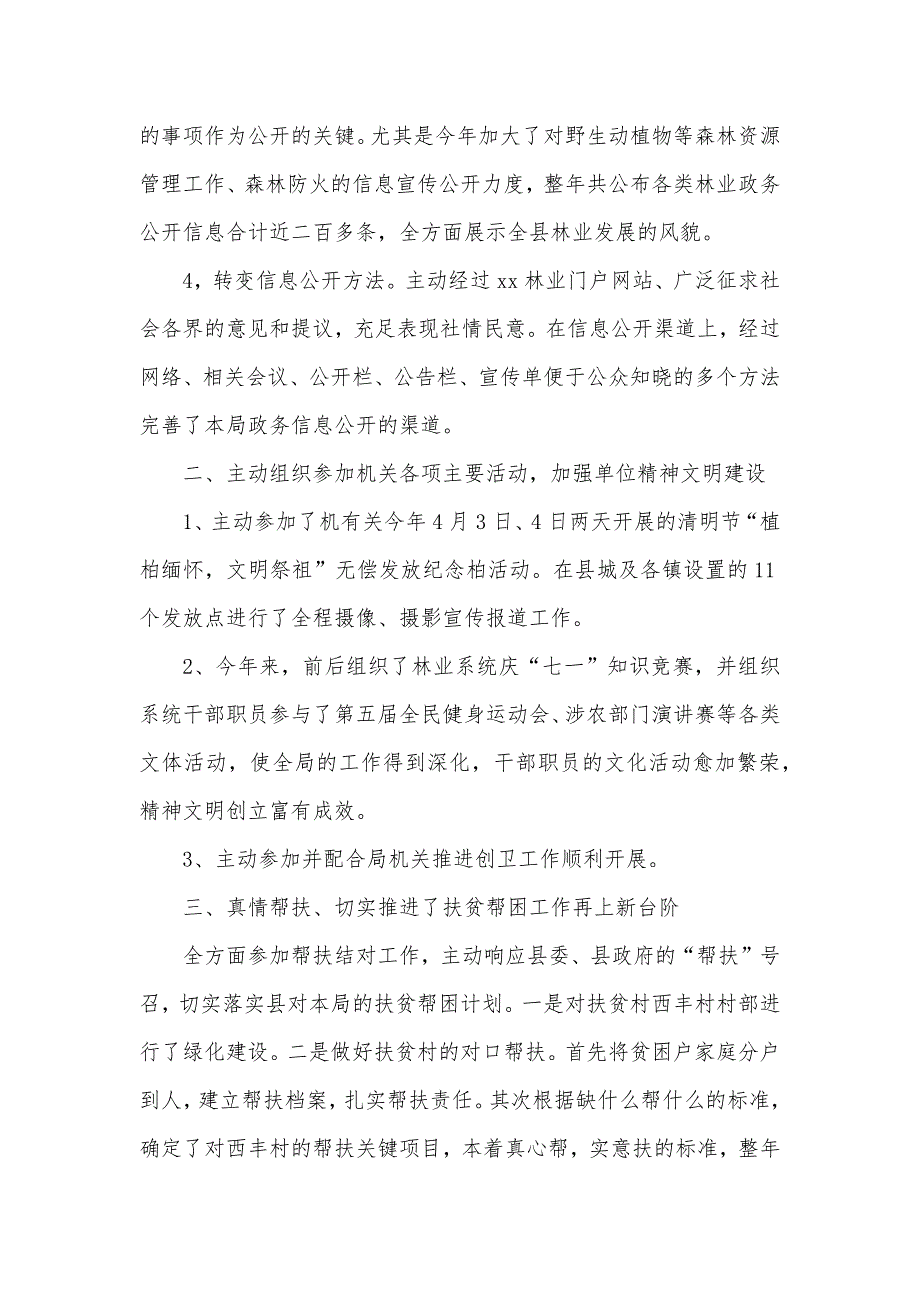 的事项作为公开的关键。尤其是今年加大了对野生动植物等森林资源
管理工作、森林防火的信息宣传公开力度，整年共公布各类林业政务
公开信息合计近二百多条，全方面展示全县林业发展的风貌。
4，转变信息公开方法。主动经过 xx 林业门户网站、广泛征求社
会各界的意见和提议，充足表现社情民意。在信息公开渠道上，经过
网络、相关会议、公开栏、公告栏、宣传单便于公众知晓的多个方法
完善了本局政务信息公开的渠道。
二、主动组织参加机关各项主要活动，加强单位精神文明建设
1、主动参加了机有关今年 4 月 3 日、4 日两天开展的清明节“植
柏缅怀，文明祭祖”无偿发放纪念柏活动。在县城及各镇设置的 11
个发放点进行了全程摄像、摄影宣传报道工作。
2、今年来，前后组织了林业系统庆“七一”知识竞赛，并组织
系统干部职员参与了第五届全民健身运动会、涉农部门演讲赛等各类
文体活动，使全局的工作得到深化，干部职员的文化活动愈加繁荣，
精神文明创立富有成效。
3、主动参加并配合局机关推进创卫工作顺利开展。
三、真情帮扶、切实推进了扶贫帮困工作再上新台阶
全方面参加帮扶结对工作，主动响应县委、县政府的“帮扶”号
召，切实落实县对本局的扶贫帮困计划。一是对扶贫村西丰村村部进
行了绿化建设。二是做好扶贫村的对口帮扶。首先将贫困户家庭分户
到人，建立帮扶档案，扎实帮扶责任。其次根据缺什么帮什么的标准，
确定了对西丰村的帮扶关键项目，本着真心帮，实意扶的标准，整年